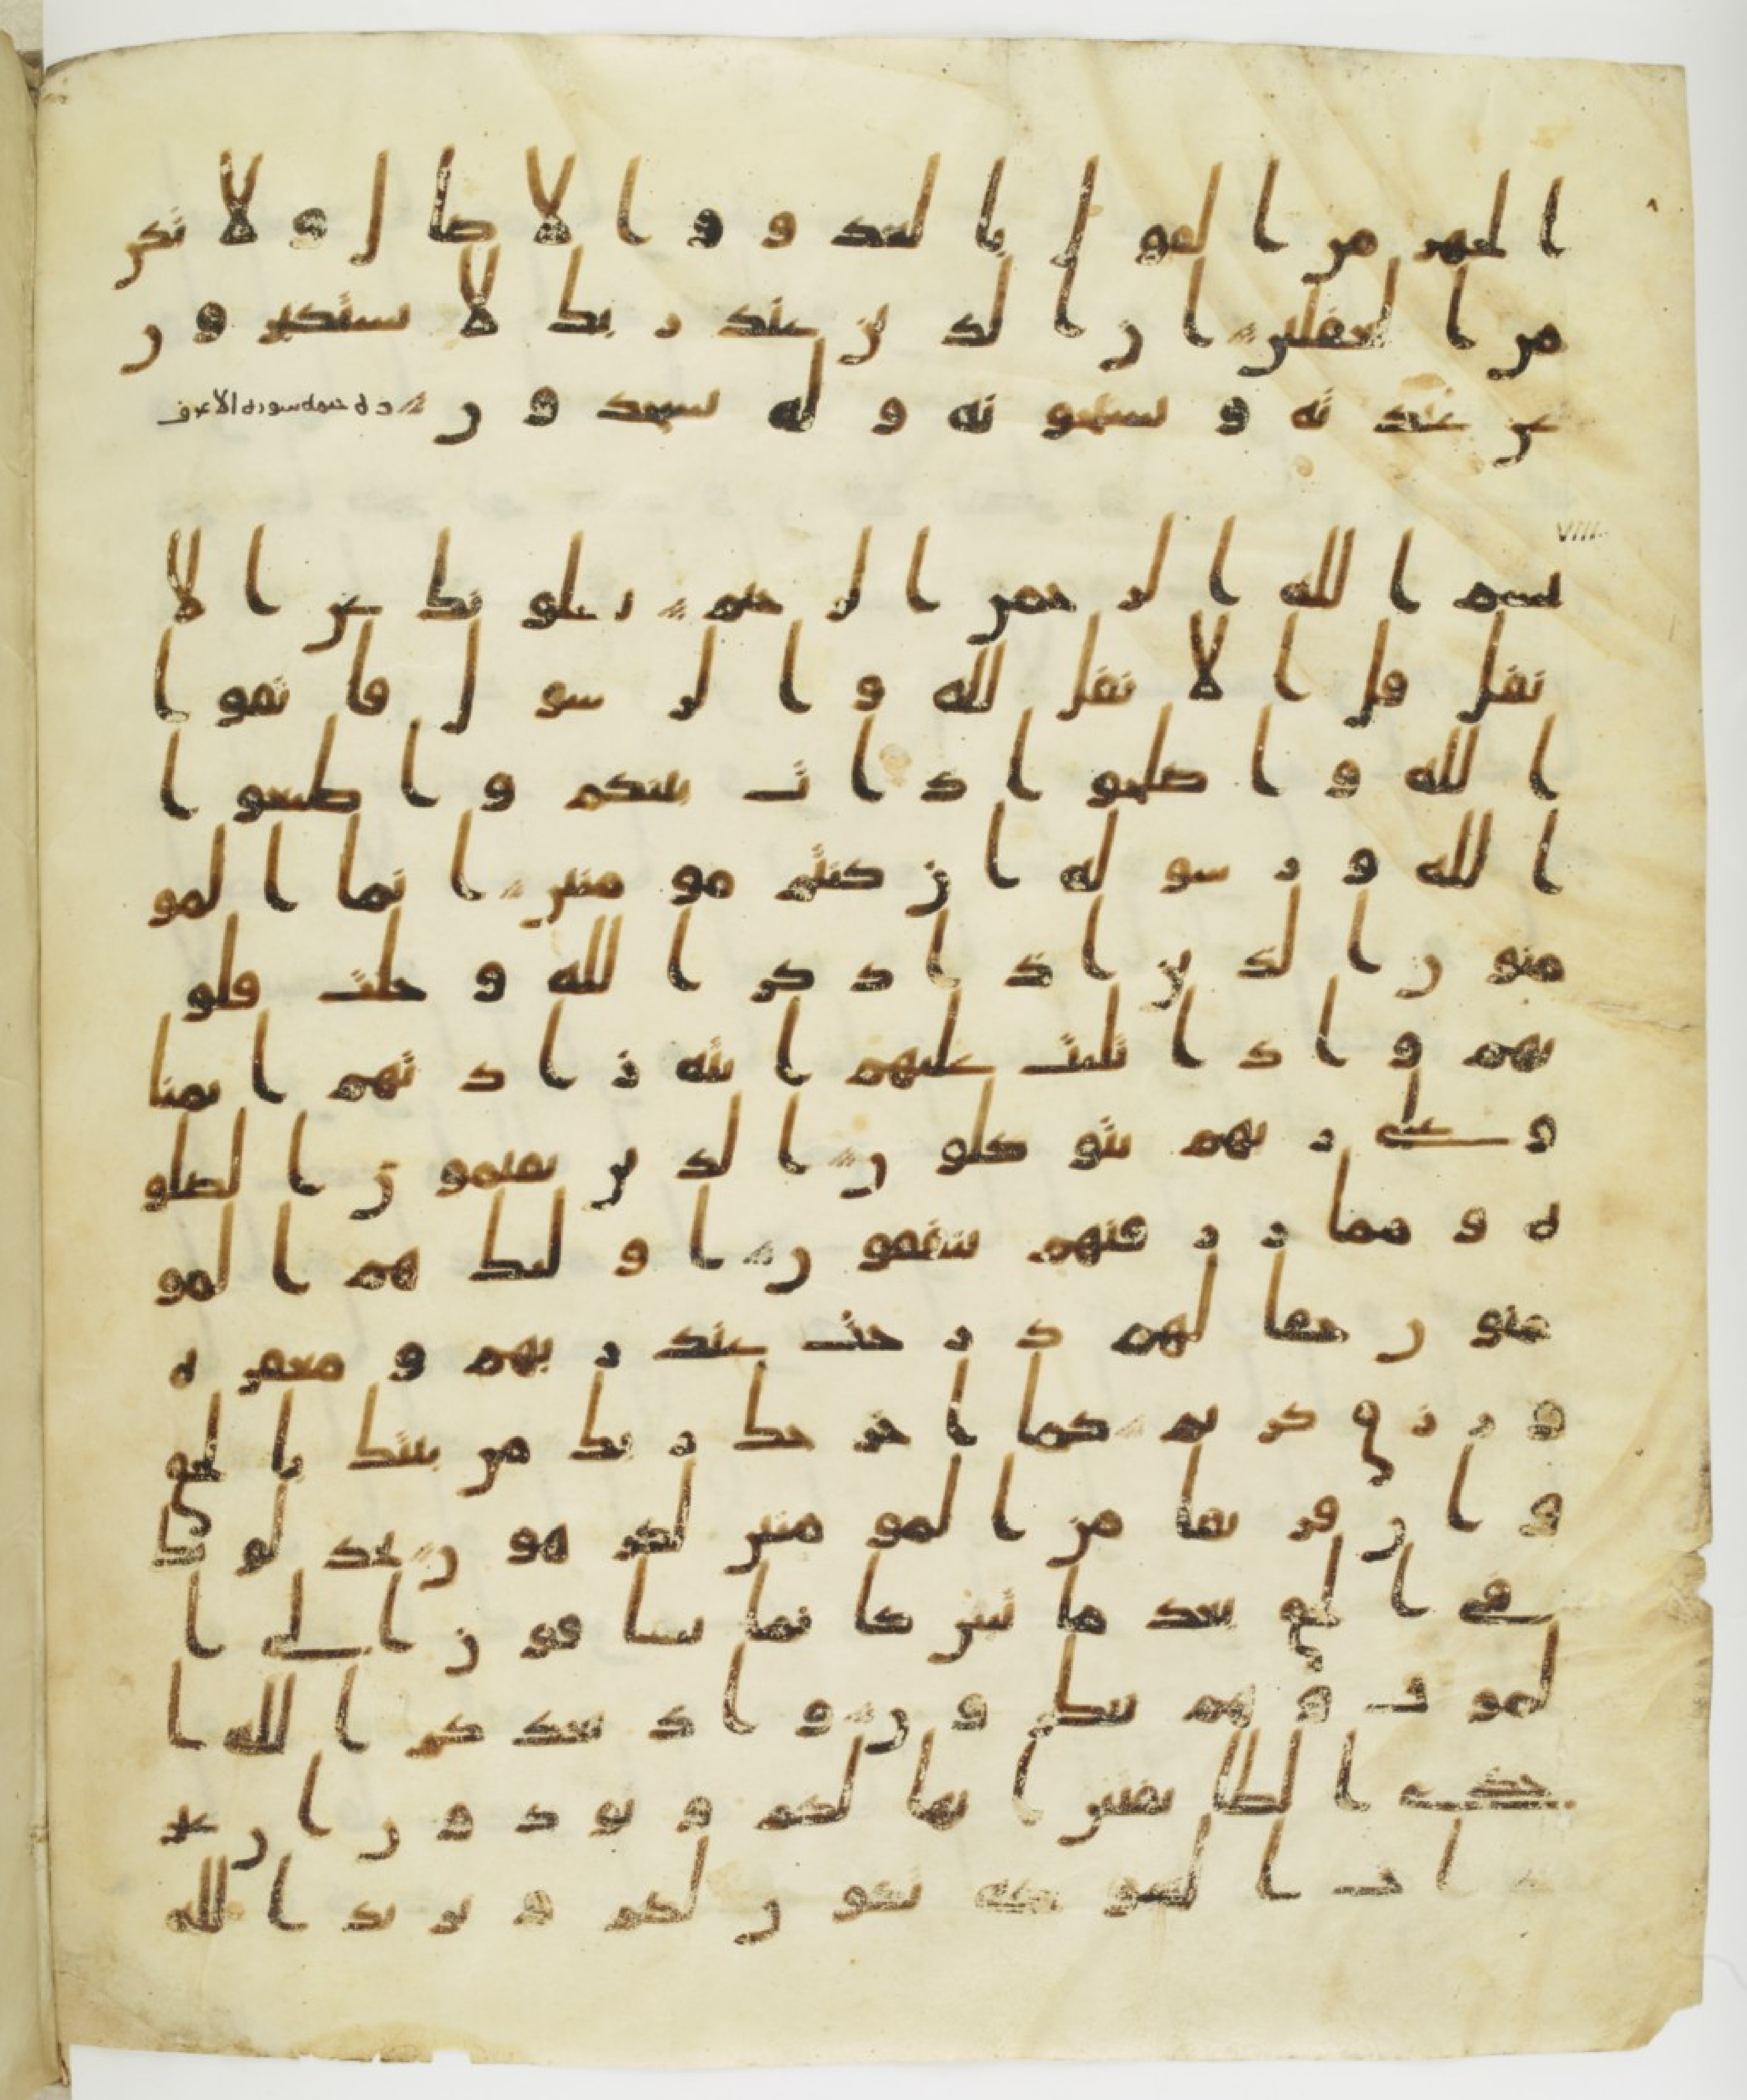 الجهر من القول بالغدو والاصال ولا تكن
من الغفلين ان الذين عند ربك لا يستكبرون
عن عبدته ويسبحونه وله يسجدون هده ختمه سوره الاعرف
VIII
بسم الله الرحمن الرحيم يسلونك عن الا
نفل قل الانفل لله والرسول فاتقوا
الله واصلحوا ذات بينكم واطيعوا
الله ورسوله ان كنتم مومنين انما المو
منون الذين اذا ذكر الله وجلت قلو
بهم واذا تليت عليهم ايته زادتهم ايمنا
وعلى ربهم يتوكلون الذين يقيمون الصلو
ه ومما رزقنهم ينفقون اوليك هم المو
منون حقا لهم درجت عند ربهم ومغفره
ورزق كريم كما اخرجك ربك من بيتك بالحق
وان فريقا من المومنين لكرهون يجدلونك
في الحق بعد ما تبين كانما يساقون الى ا
لموت وهم ينظرون واذ يعدكم الله ا
حدى الطايفتين انها لكم وتودون ان
ذات الشوكه تكون لكم ويريد الله